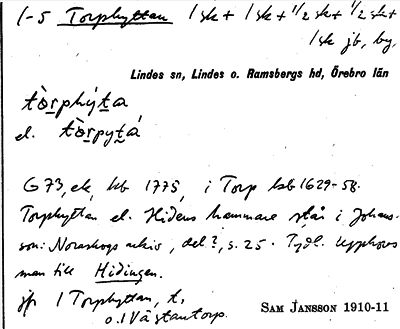 1-5 Torphyttan 1 sk + 1 sk + 1/2 sk + 1/2 sk +
1 sk jb, by,
Lindes sn, Lindes o. Ramsbergs hd, Örebro län
tòrphýta
el. tòrpytá
G 73, ek, hb 1775, i Torp hsb 1629-58.
Torphyttan el. Hidens hammare står i Johans-
son: Noraskogs arkiv, del ?, s. 25. Tydl. upphovs
man till Hidingen.
jfr 1 Torphyttan, t,
o. 1 Västantorp.
SAM JANSSON 1910-11